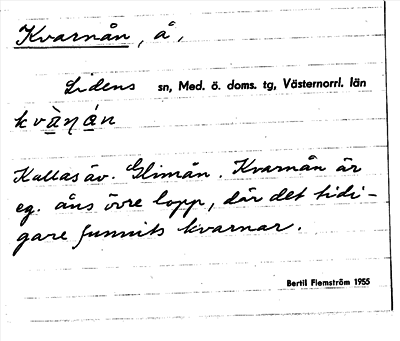 Kvarnån, å,
Lidens sn, Med. ö. doms. tg, Västernorrl. län
kvàṇán
Kallas äv. Glimån. Kvarnån är
eg. åns övre lopp, där det tidi-
gare funnits kvarnar.
Bertil Flemström 1955